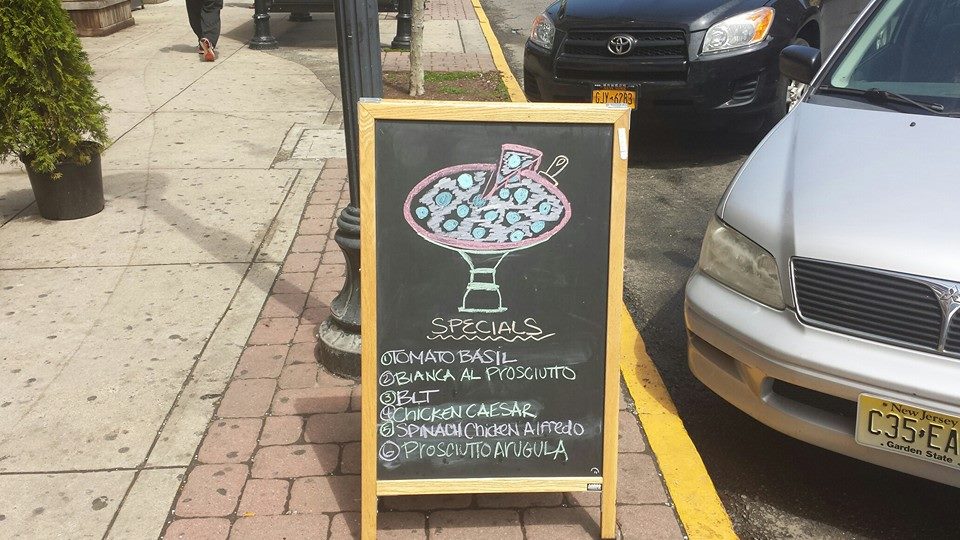 GJY-6783
SPECIALS
① TOMATO BASIL
② BIANCA AL PROSCIUTTO
③ BLT
④ CHICKEN CAESAR
⑤ SPINACH CHICKEN Alfredo
⑥ PROSCIUTTO ARUGULA
New Jersey
C35 EA
Garden State